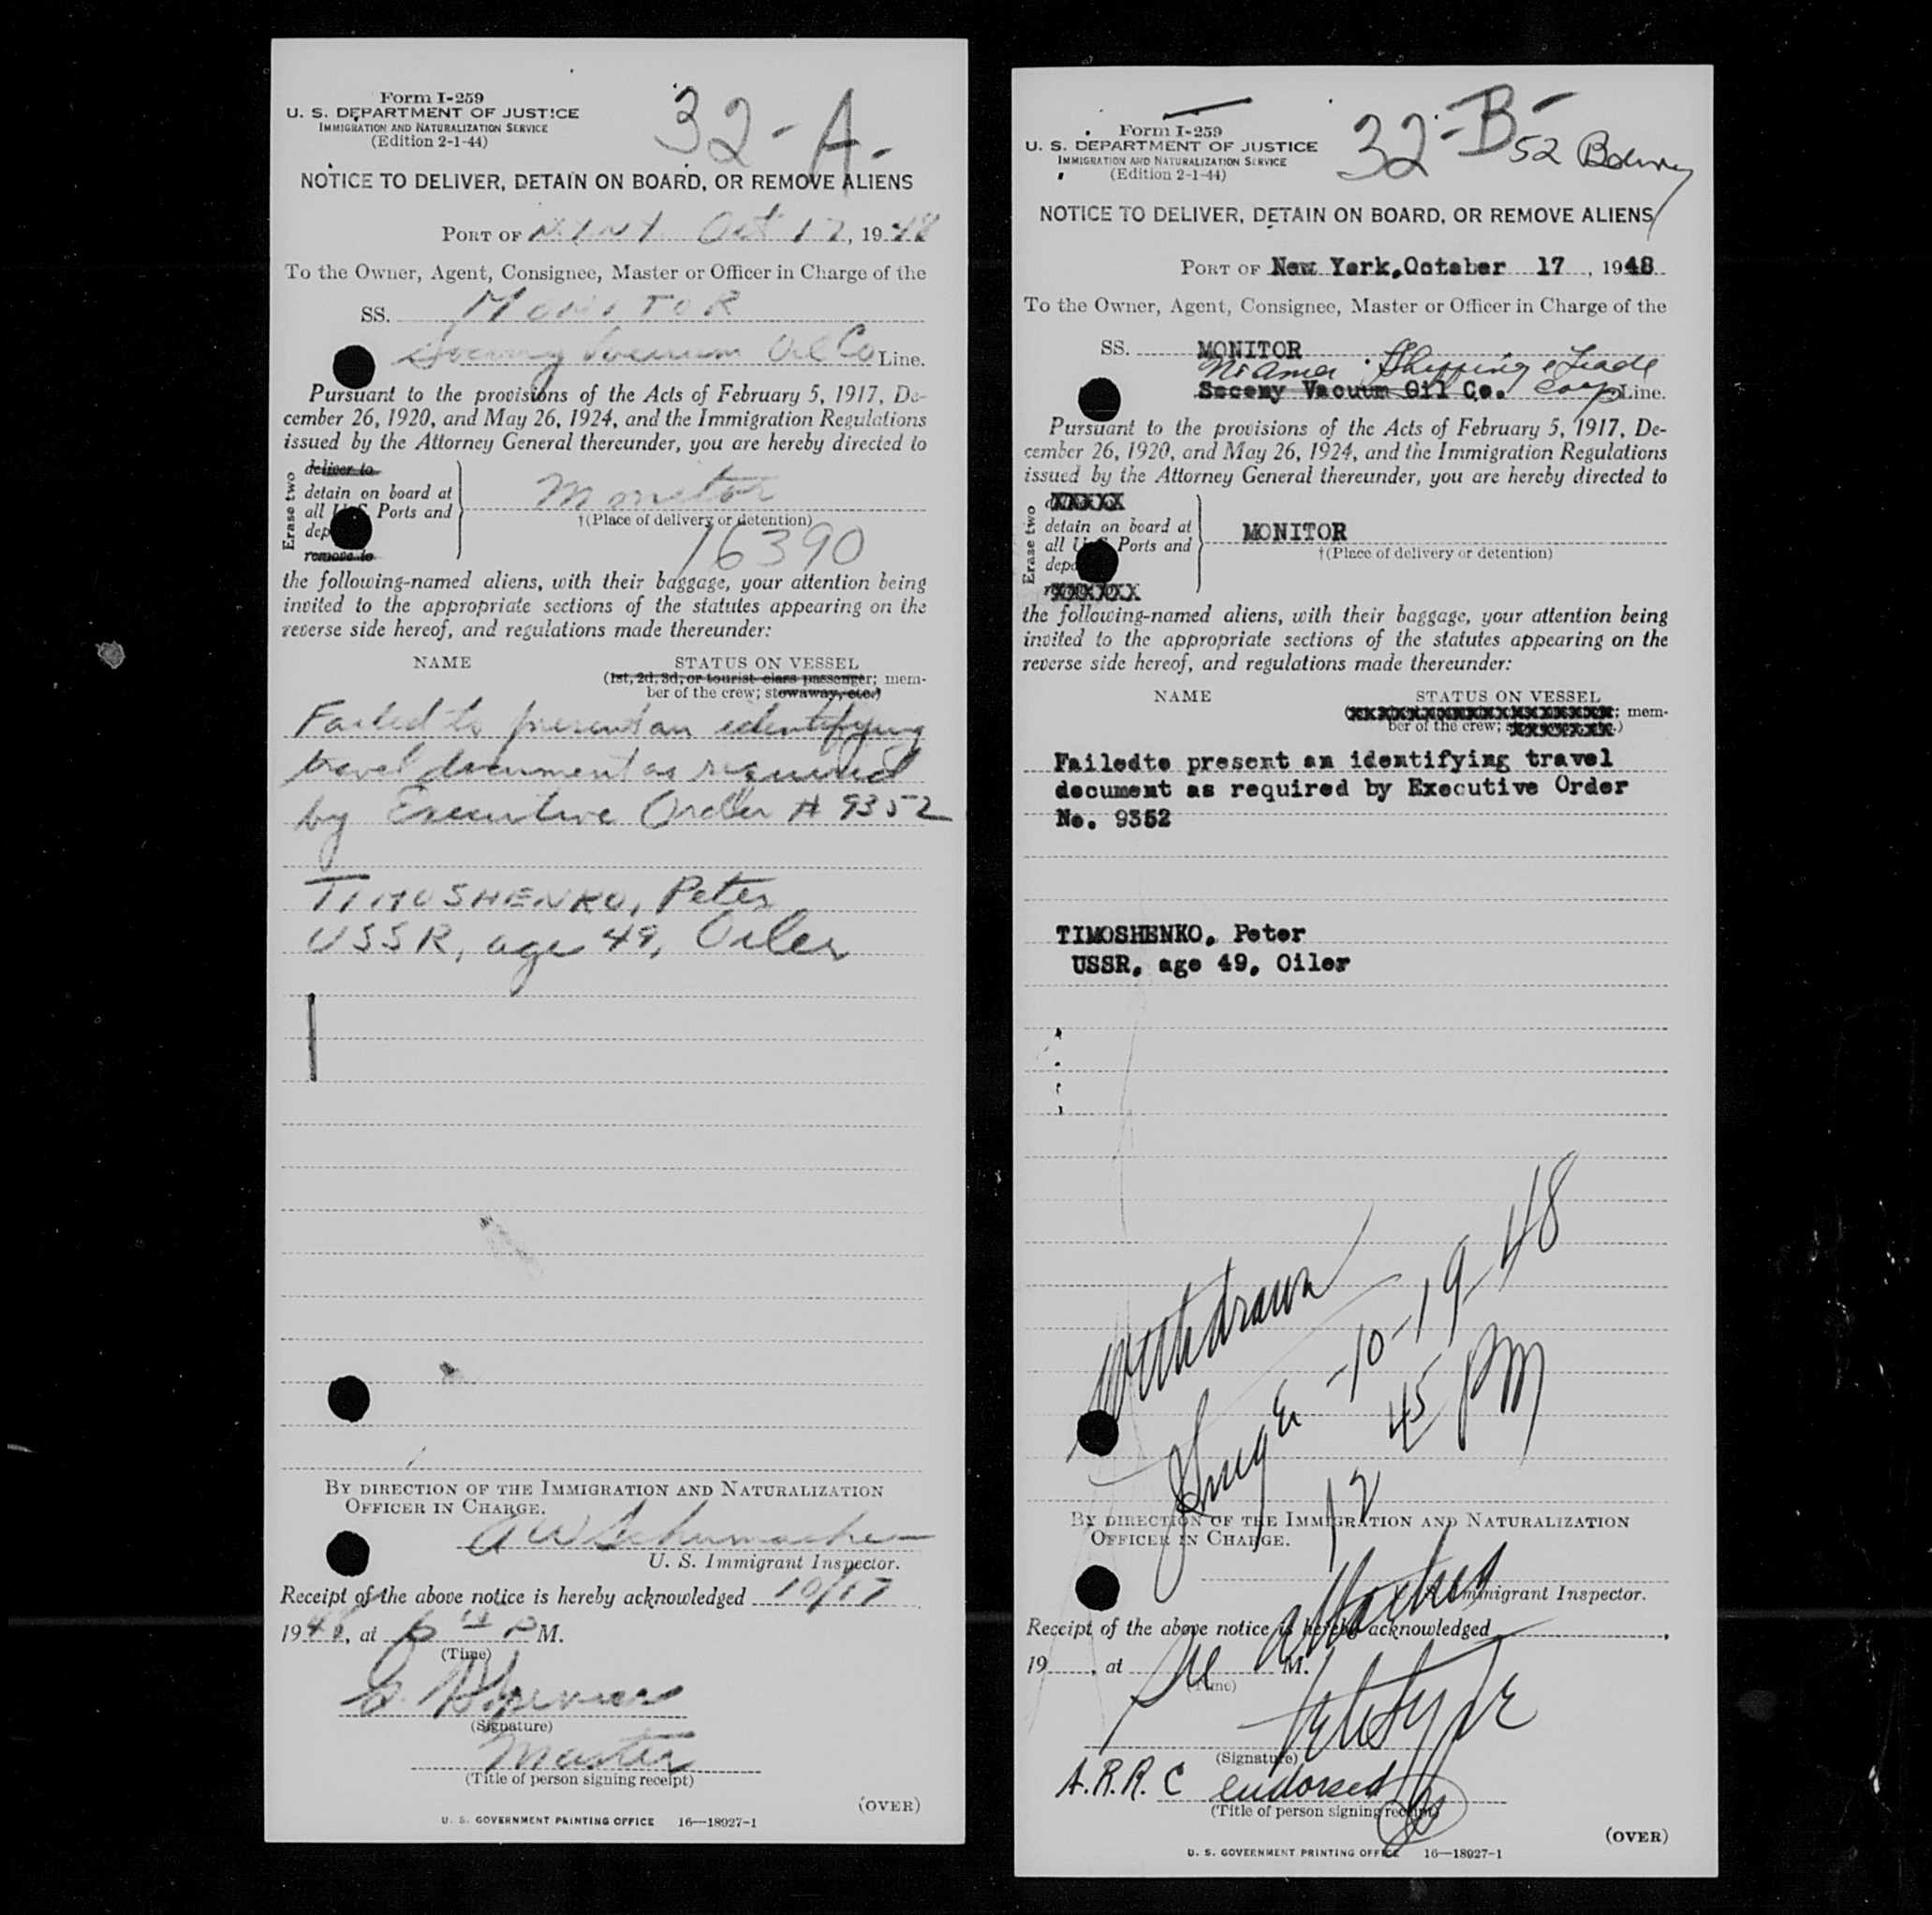 Form I-259
U. S. DEPARTMENT OF JUSTICE
IMMIGRATION AND NATURALIZATION SERVICE
(Edition 2-1-44)
32-A-
NOTICE TO DELIVER, DETAIN ON BOARD, OR REMOVE ALIENS
PORT OF N.Y.N.Y. Oct 17, 1948
To the Owner, Agent, Consignee, Master or Officer in Charge of the
SS. MONITOR
Socony Vacuum Oil Co Line.
Pursuant to the provisions of the Acts of February 5, 1917, De-
cember 26, 1920, and May 26, 1924, and the Immigration Regulations
issued by the Attorney General thereunder, you are hereby directed to
Erase two
deliver to
detain on board at
all U.S. Ports and
dep
remove to
Monitor
†(Place of delivery or detention)
16390
the following-named aliens, with their baggage, your attention being
invited to the appropriate sections of the statutes appearing on the
reverse side hereof, and regulations made thereunder:
NAME STATUS ON VESSEL
(1st, 2d, 3d, or tourist class passenger; mem-
ber of the crew; stowaway, etc.)
Failed to present an identifying
travel document as required
by Executive Order # 9352
TIMOSHENKO, Peter
USSR, age 49, Oiler
BY DIRECTION OF THE IMMIGRATION AND NATURALIZATION
OFFICER IN CHARGE.
A W Schumacher
U. S. Immigrant Inspector.
Receipt of the above notice is hereby acknowledged 10/17
1948, at 6 P M.
(Time)
(Signature)
Master
(Title of person signing receipt)
(OVER)
U. S. GOVERNMENT PRINTING OFFICE 16—18927-1
Form I-259
U. S. DEPARTMENT OF JUSTICE
IMMIGRATION AND NATURALIZATION SERVICE
(Edition 2-1-44)
32-B-
52 Bdwy
NOTICE TO DELIVER, DETAIN ON BOARD, OR REMOVE ALIENS
PORT OF New York, October 17, 1948
To the Owner, Agent, Consignee, Master or Officer in Charge of the
SS. MONITOR
Shipping & Trade
Socony Vacuum Oil Co. Corp Line.
Pursuant to the provisions of the Acts of February 5, 1917, De-
cember 26, 1920, and May 26, 1924, and the Immigration Regulations
issued by the Attorney General thereunder, you are hereby directed to
Erase two
detain on board at
all U.S. Ports and
depa
MONITOR
†(Place of delivery or detention)
the following-named aliens, with their baggage, your attention being
invited to the appropriate sections of the statutes appearing on the
reverse side hereof, and regulations made thereunder:
NAME STATUS ON VESSEL
; mem-
ber of the crew;
Failedto present an identifying travel
document as required by Executive Order
No. 9352
TIMOSHENKO, Peter
USSR, age 49, Oiler
Withdrawn
10-19-48
12 45 PM
BY DIRECTION OF THE IMMIGRATION AND NATURALIZATION
OFFICER IN CHARGE.
Immigrant Inspector.
Receipt of the above notice is hereby acknowledged
19 , at M.
(Time)
See attached
teletype
(Signature)
A.R.R.C endorsed
(Title of person signing receipt)
(OVER)
U. S. GOVERNMENT PRINTING OFFICE 16—18927-1